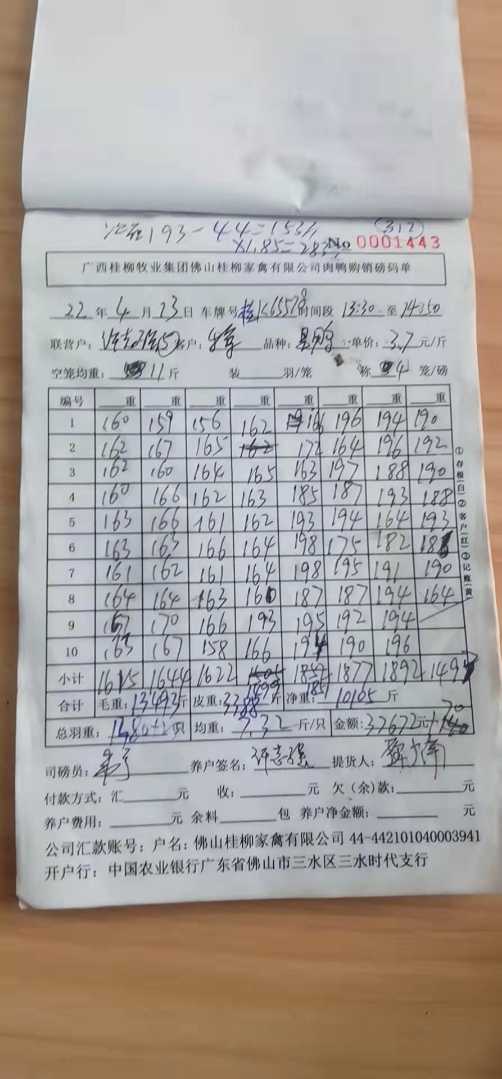 193-44=153斤
(312)
×1.85=283
No 0001443
广西桂柳牧业集团佛山桂柳家禽有限公司肉鸭购销磅码单
22年4月23日 车牌号 时间段13:30至14:50
联营户: 客户: 品种: 单价:3.7元/斤
空笼均重:11斤 装 羽/笼 称4笼/磅
编号 重 重 重 重 重 重 重 重
1 160 159 156 162 166 196 194 190
2 162 167 165 162 172 164 196 192
3 162 160 164 165 163 197 188 190
4 160 166 162 163 185 187 193 188
5 163 166 161 162 193 194 164 193
6 163 163 166 164 198 175 182
7 161 162 161 164 198 195 191 190
8 164 164 163 160 187 187 194 164
9 167 170 166 193 195 192 194
10 165 167 158 166 194 190 196
小计 1615 1644 1622 1877 1892 1495
合计 毛重:13493斤 皮重:3388斤 净重:10105斤
总羽重: 只 均重:7.32斤/只 金额:37672元
司磅员: 养户签名:许志强 提货人:
付款方式:汇 元 收: 元 欠(余)款: 元
养户费用: 元 余料 包 养户净金额: 元
公司汇款账号:户名:佛山桂柳家禽有限公司 44-442101040003941
开户行:中国农业银行广东省佛山市三水区三水时代支行
①存根(白)②客户(红)③记账(黄)